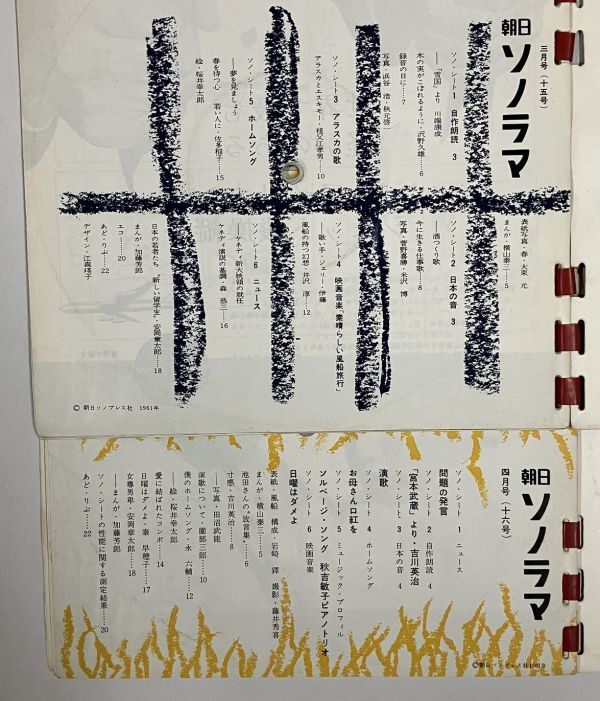 朝日
ソノラマ
三月号(十五号)
表紙写真・春・大束 元
まんが・横山泰三……5
ソノ・シート1 自作朗読 3
──「雪国」より 川端康成
木の実がこぼれるように・沢野久雄……6
録音の日に……7
写真・浜谷 浩・秋元啓一
ソノ・シート2 日本の音 3
──酒つくり歌
今に生きる仕事歌……8
写真・菅野喜勝・米沢 博
ソノ・シート3 アラスカの歌
アラスカとエスキモー・祖父江孝男……10
ソノ・シート4 映画音楽「素晴らしい風船旅行」
──歌い手・ジェリー・伊藤
風船の持つ幻想・井沢 淳……12
ソノ・シート5 ホームソング
──夢を見ましょう
春を待つ心 若い人に・佐多稲子……15
絵・桜井幸太郎
ソノ・シート6 ニュース
──ケネディ新大統領の就任
ケネディ演説の基調・森 恭三……16
日本の若者たち・“新しい留学生”・安岡章太郎……18
まんが・加藤芳郎
エコー……20
あど・りぶ……22
デザイン・江森瑶子
© 朝日ソノプレス社 1961年
朝日
ソノラマ
四月号(十六号)
ソノ・シート 1 ニュース
問題の発言
ソノ・シート 2 自作朗読 4
「宮本武蔵」より・吉川英治
ソノ・シート 3 日本の音 4
演歌
ソノ・シート 4 ホームソング
お母さん口紅を
ソノ・シート 5 ミュージック・プロフィル
ソルベージ・ソング 秋吉敏子ピアノトリオ
ソノ・シート 6 映画音楽
日曜はダメよ
表紙・風船 構成・岩崎 鐸 撮影・藤井秀喜
まんが・横山泰三……5
池田さんの“放言集”……6
寸感・吉川英治……8
──写真・田沼武能
演歌について・園部三郎……10
僕のホームソング・永 六輔……12
──絵・桜井幸太郎
愛に結ばれたコンボ……14
日曜はダメよ・秦 早穂子……17
女尊男卑・安岡章太郎……18
──まんが・加藤芳郎
ソノ・シートの性能に関する測定結果……20
あど・りぶ……22
©朝日ソノプレス社1961年